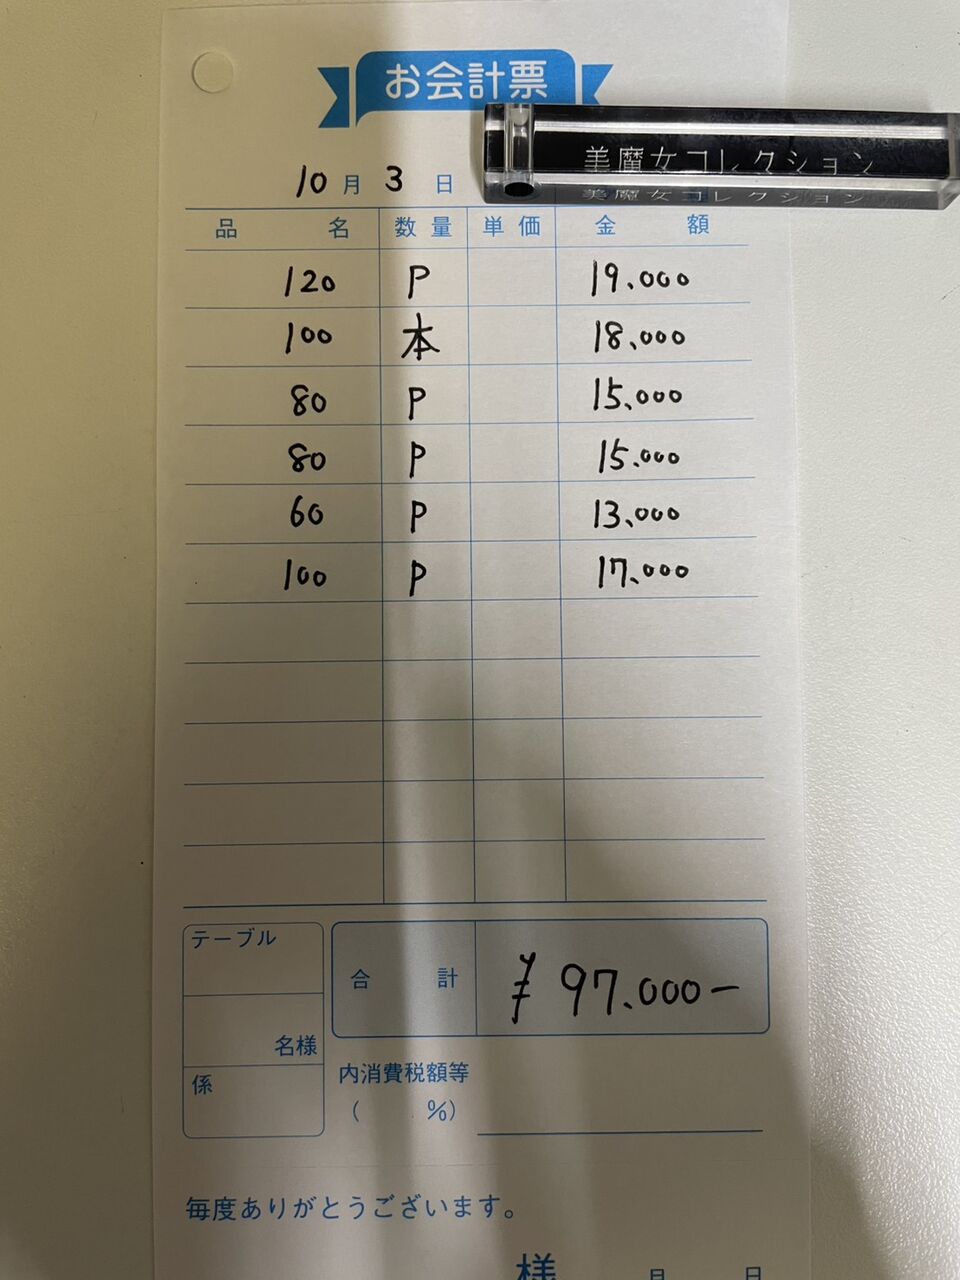 お会計票
美魔女コレクション
美魔女コレクション
10月3日
品名 数量 単価 金額
120 P 19.000
100 本 18.000
80 P 15.000
80 P 15.000
60 P 13.000
100 P 17.000
テーブル
名様
係
合計 ¥97.000-
内消費税額等
( %)
毎度ありがとうございます。
様 月 日